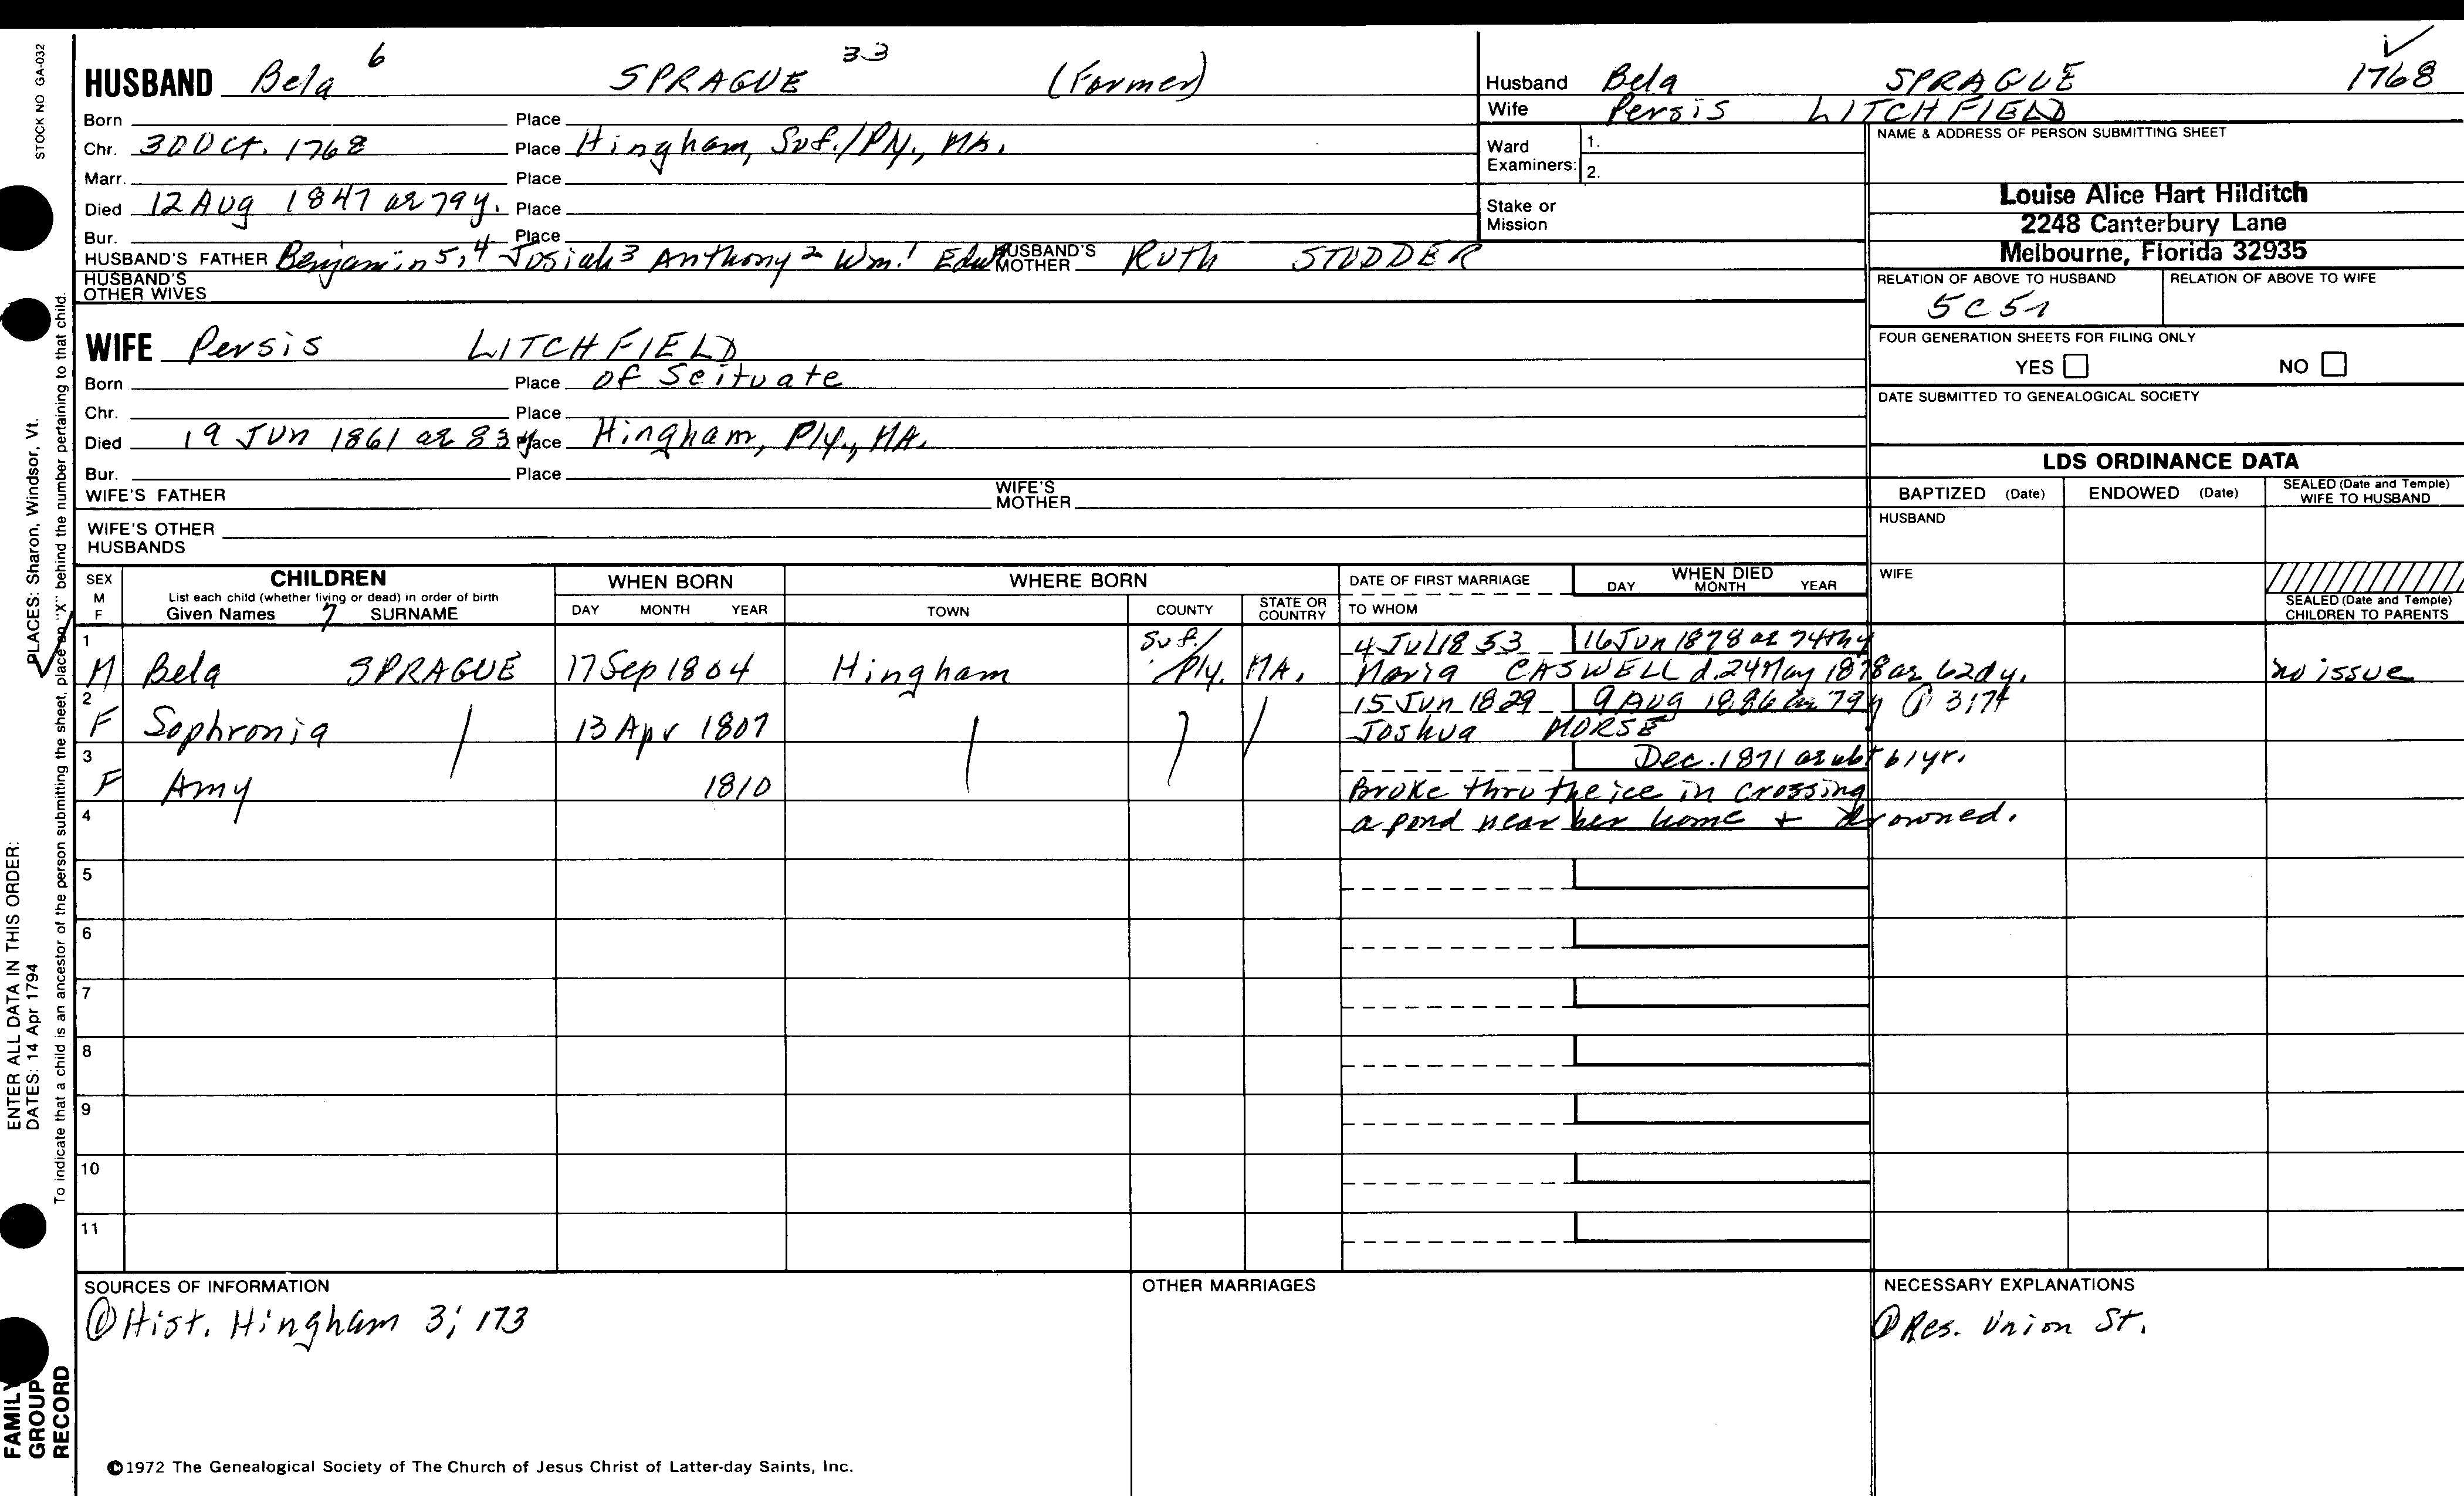 STOCK NO GA-032
HUSBAND Bela 6 SPRAGUE 33 (Farmer)
Born Place
Chr. 30 Oct. 1768 Place Hingham, Suf./Ply., MA.
Marr. Place
Died 12 Aug 1847 ae 79 y. Place
Bur. Place
HUSBAND'S FATHER Benjamin 5,4 Josiah 3 Anthony 2 Wm. 1 Edw HUSBAND'S MOTHER Ruth STODDER
HUSBAND'S OTHER WIVES
WIFE Persis LITCHFIELD
Born Place of Scituate
Chr. Place
Died 19 Jun 1861 ae 83 y Place Hingham, Ply., MA.
Bur. Place
WIFE'S FATHER WIFE'S MOTHER
WIFE'S OTHER HUSBANDS
Husband Bela SPRAGUE 1768
Wife Persis LITCHFIELD
Ward Examiners: 1.
2.
Stake or Mission
NAME & ADDRESS OF PERSON SUBMITTING SHEET
Louise Alice Hart Hilditch
2248 Canterbury Lane
Melbourne, Florida 32935
RELATION OF ABOVE TO HUSBAND RELATION OF ABOVE TO WIFE
5C5r
FOUR GENERATION SHEETS FOR FILING ONLY
YES NO
DATE SUBMITTED TO GENEALOGICAL SOCIETY
LDS ORDINANCE DATA
BAPTIZED (Date) ENDOWED (Date) SEALED (Date and Temple) WIFE TO HUSBAND
HUSBAND
WIFE
SEALED (Date and Temple) CHILDREN TO PARENTS
SEX M F
CHILDREN
List each child (whether living or dead) in order of birth
Given Names 7 SURNAME
WHEN BORN
DAY MONTH YEAR
WHERE BORN
TOWN COUNTY STATE OR COUNTRY
DATE OF FIRST MARRIAGE
TO WHOM
WHEN DIED
DAY MONTH YEAR
1 M Bela SPRAGUE 17 Sep 1804 Hingham Suf./Ply. MA. 4 Jul 1853 16 Jun 1878 ae 74th y
Maria CASWELL d. 24 May 1878 ae 62d y. no issue
2 F Sophronia 13 Apr 1807 15 Jun 1829 9 Aug 1886 ae 79 y P 317t
Joshua MORSE
3 F Amy 1810 Dec. 1871 ae abt 61 yr.
Broke thru the ice in crossing
4 a pond near her home + drowned.
5
6
7
8
9
10
11
SOURCES OF INFORMATION
① Hist. Hingham 3; 173
OTHER MARRIAGES
NECESSARY EXPLANATIONS
① Res. Union St.
©1972 The Genealogical Society of The Church of Jesus Christ of Latter-day Saints, Inc.
FAMILY GROUP RECORD
ENTER ALL DATA IN THIS ORDER:
DATES: 14 Apr 1794
PLACES: Sharon, Windsor, Vt.
To indicate that a child is an ancestor of the person submitting the sheet, place an "X" behind the number pertaining to that child.